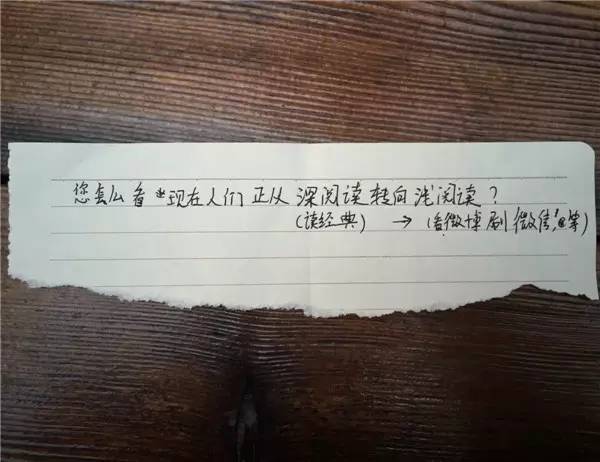 您怎么看现在人们正从深阅读转向浅阅读？
(读经典) → (看微博刷微信,等)